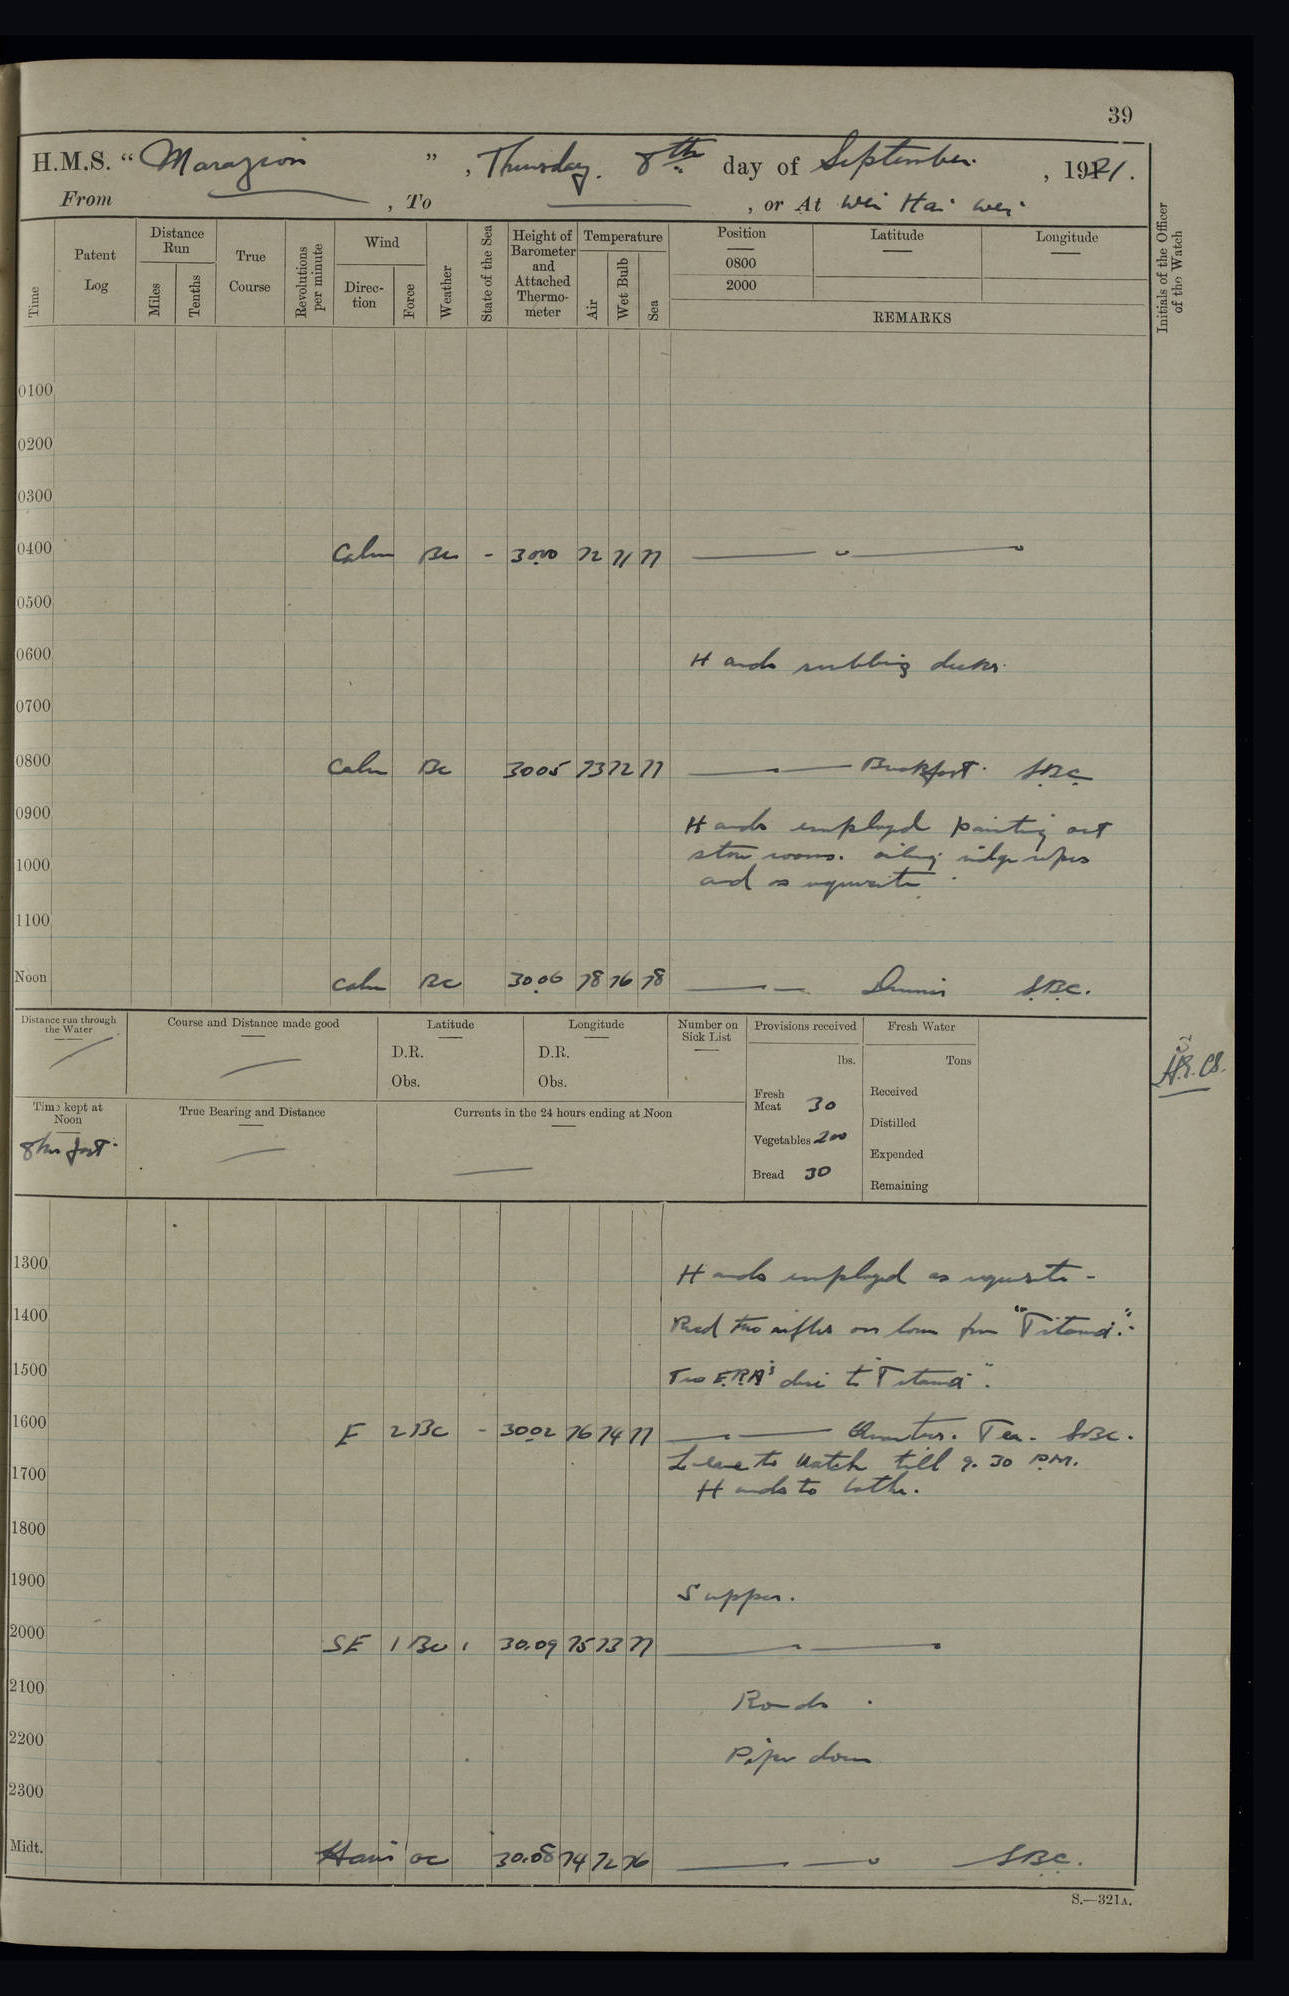 39
H.M.S. “ Marazion ” , Thursday. 8th day of September. , 1921.
From , To , or At Wei Hai Wei
Time
Patent Log
Distance Run
Miles
Tenths
True Course
Revolutions per minute
Wind
Direc-tion
Force
Weather
State of the Sea
Height of Barometer and Attached Thermo-meter
Temperature
Air
Wet Bulb
Sea
Position
Latitude
Longitude
0800
2000
REMARKS
Initials of the Officer of the Watch
0100
0200
0300
0400 Calm Bc - 30.00 72 71 77
0500
0600
Hands scrubbing decks.
0700
0800 Calm Bc 30.05 73 72 77 Breakfast. S.B.C.
0900
Hands employed painting out
1000 store rooms. oiling ridge ropes
and as requisite.
1100
Noon Calm Bc 30.06 78 76 78 Dinner S.B.C.
Distance run through the Water
Course and Distance made good
Latitude
D.R.
Obs.
Longitude
D.R.
Obs.
Number on Sick List
Provisions received
lbs.
Fresh Meat 30
Vegetables 200
Bread 30
Fresh Water
Tons
Received
Distilled
Expended
Remaining
Time kept at Noon
8 hrs fast.
True Bearing and Distance
Currents in the 24 hours ending at Noon
1300
Hands employed as requisite -
1400
Recd two rifles on loan from "Titania".
1500
Two E.R.A's disc to "Titania".
1600 E 2 Bc - 30.02 76 74 77 Quarters. Tea. S.B.C.
Leave to Watch till 9.30 P.M.
1700
Hands to bathe.
1800
1900
Supper.
2000 SE 1 Bc 1 30.09 75 73 77
2100
Rounds.
2200
Pipe down
2300
Midt. bc 30.08 74 72 76 S.B.C.
S.—321A.